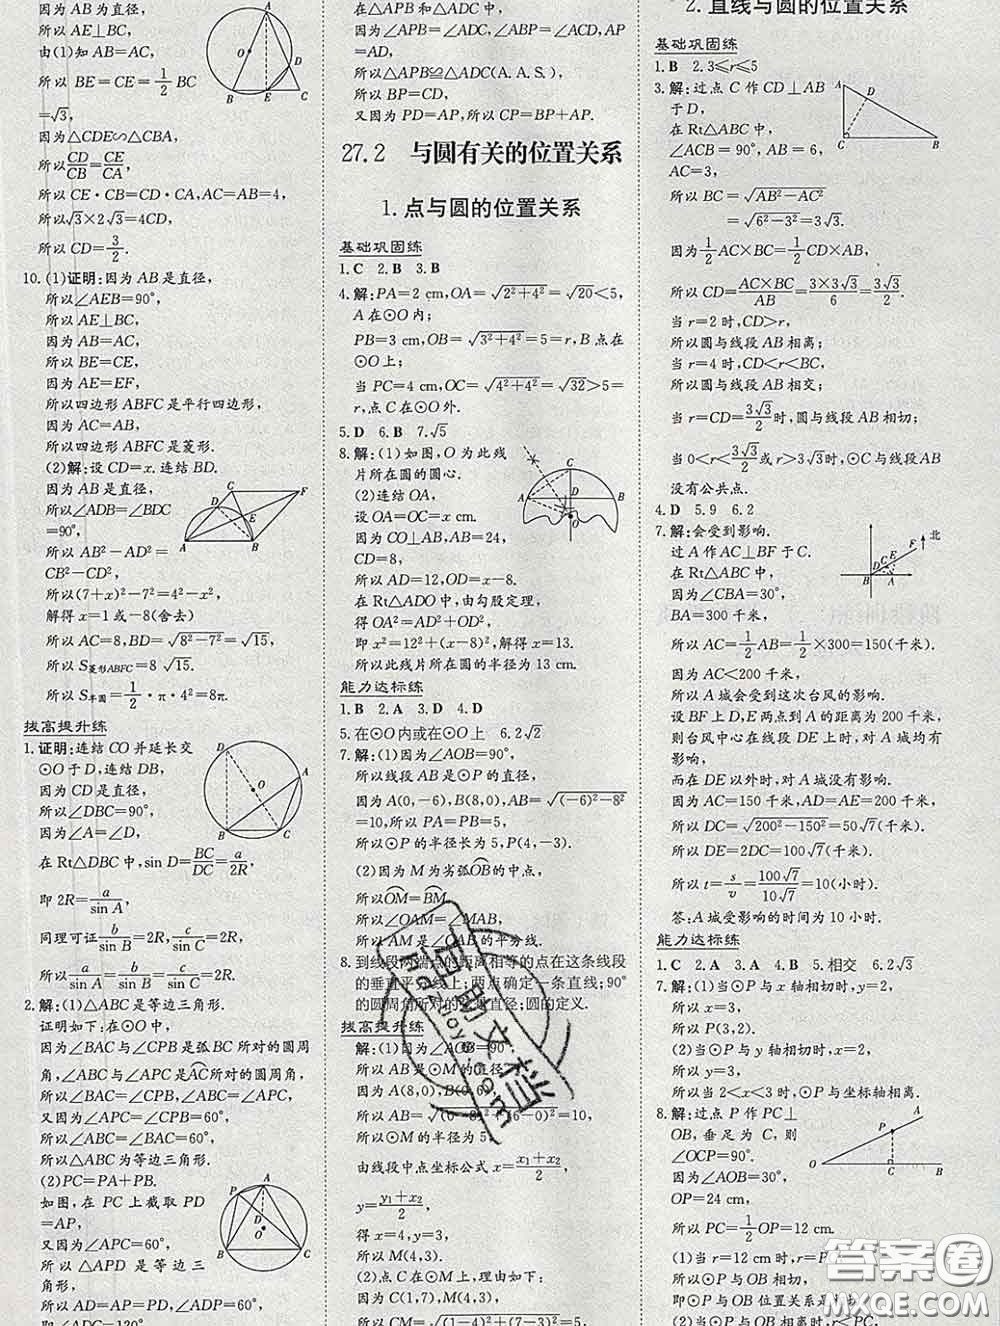 因为 AB 为直径,
所以 AE⊥BC,
由(1)知 AB=AC,
所以 BE=CE=1/2 BC
=√3,
因为△CDE∽△CBA,
所以CD/CB=CE/CA,
所以 CE·CB=CD·CA,AC=AB=4,
所以√3×2√3=4CD,
所以 CD=3/2.
10.(1)证明:因为 AB 是直径,
所以∠AEB=90°,
所以 AE⊥BC,
因为 AB=AC,
所以 BE=CE,
因为 AE=EF,
所以四边形 ABFC 是平行四边形,
因为 AC=AB,
所以四边形 ABFC 是菱形.
(2)解:设 CD=x.连结 BD.
因为 AB 是直径,
所以∠ADB=∠BDC
=90°,
所以 AB²-AD²=
CB²-CD²,
所以(7+x)²-7²=4²-x²,
解得 x=1 或-8(舍去)
所以 AC=8,BD=√(8²-7²)=√15,
所以 S菱形ABFC=8 √15.
所以 S半圆=1/2·π·4²=8π.
拔高提升练
1.证明:连结 CO 并延长交
⊙O 于 D,连结 DB,
因为 CD 是直径,
所以∠DBC=90°,
因为∠A=∠D,
在 Rt△DBC 中,sin D=BC/DC=a/2R,
即 2R=a/sin A,
同理可证b/sin B=2R,c/sin C=2R,
所以a/sin A=b/sin B=c/sin C=2R.
2.解:(1)△ABC 是等边三角形.
证明如下:在⊙O 中,
因为∠BAC 与∠CPB 是弧BC 所对的圆周
角,∠ABC 与∠APC 是AC所对的圆周角,
所以∠BAC=∠CPB,∠ABC=∠APC,
又因为∠APC=∠CPB=60°,
所以∠ABC=∠BAC=60°,
所以△ABC 为等边三角形.
(2)PC=PA+PB.
如图,在 PC 上截取 PD
=AP,
又因为∠APC=60°,
所以△APD 是等边三角
形,
所以 AD=AP=PD,
∠ADP=60°,即
∠ADC=120°.
在△APB 和△ADC 中,
因为∠APB=∠ADC,∠ABP=∠ACD,AP
=AD,
所以△APB≌△ADC(A.A.S.),
所以 BP=CD,
又因为 PD=AP,所以 CP=BP+AP.
27.2 与圆有关的位置关系
1.点与圆的位置关系
基础巩固练
1.C 2.B 3.B
4.解:PA=2 cm,OA=√(2²+4²)=√20<5,
A 在⊙O 内;
PB=3 cm,OB=√(3²+4²)=5=r,B 点在
⊙O 上;
当 PC=4 cm,OC=√(4²+4²)=√32>5=
r,点 C 在⊙O 外.
5.D 6.B 7.√5
8.解:(1)如图,O 为此残
片所在圆的圆心.
(2)连结 OA,
设 OA=OC=x cm.
因为 CO⊥AB,AB=24,
CD=8,
所以 AD=12,OD=x-8.
在 Rt△ADO 中,由勾股定理,
得 OA²=AD²+OD²,
即 x²=12²+(x-8)²,解得 x=13.
所以此残片所在圆的半径为 13 cm.
能力达标练
1.B 2.A 3.D 4.D
5.在⊙O 内或在⊙O 上 6.2√2
7.解:(1)因为∠AOB=90°,
所以线段 AB 是⊙P 的直径,
因为 A(0,-6),B(8,0),AB=√((-6)²-8²)
=10,所以 PA=PB=5,
所以⊙P 的半径长为 5,P(4,-3).
(2)因为 M 为劣弧OB的中点,
所以OM=BM,
所以∠OAM=∠MAB,
所以 AM 是∠OAB 的平分线.
8.到线段两端点的距离相等的点在这条线段
的垂直平分线上;两点确定一条直线;90°
的圆周角所对的弦是直径;圆的定义.
拔高提升练
解:(1)因为∠AOB=90°
所以 AB 是⊙M 的直径,
因为 A(8,0),B(0,6)
所以 AB=√((0-8)²+(6-0)²)=10,
所以⊙M 的半径为 5,
由线段中点坐标公式 x=(x₁+x₂)/2,
y=(y₁+y₂)/2,
得 x=4,y=3,
所以 M(4,3).
(2)点 C 在⊙M 上,理由如下:
因为 C(1,7),M(4,3),
所以 CM=√((1-4)²+(7-3)²)=5,
2.直线与圆的位置关系
基础巩固练
1.B 2.3≤r≤5
3.解:过点 C 作 CD⊥AB
于 D,
在 Rt△ABC 中,
∠ACB=90°,AB=6,
AC=3,
所以 BC=√(AB²-AC²)
=√(6²-3²)=3√3.
因为1/2 AC×BC=1/2 CD×AB,
所以 CD=AC×BC/AB=3×3√3/6=3√3/2.
当 r=2 时,CD>r,
所以圆与线段 AB 相离;
当 r=4 时,CD<r<BC,
所以圆与线段 AB 相交;
当 r=CD=3√3/2时,圆与线段 AB 相切;
当 0<r<3√3/2或 r>3√3时,⊙C 与线段AB
没有公共点.
4.D 5.9 6.2
7.解:会受到影响.
过 A 作 AC⊥BF 于 C.
在 Rt△ABC 中,
因为∠CBA=30°,
BA=300 千米,
所以 AC=1/2 AB=1/2×300=150(千米),
因为 AC<200 千米,
所以 A 城会受到这次台风的影响.
设 BF 上 D,E 两点到 A 的距离为 200 千米,
则台风中心在线段 DE 上时,对 A 城均有
影响,
而在 DE 以外时,对 A 城没有影响.
因为 AC=150 千米,AD=AE=200 千米,
所以 DC=√(200²-150²)=50√7(千米).
所以 DE=2DC=100√7(千米).
所以 t=s/v=100√7/10√7=10(小时).
答:A 城受影响的时间为 10 小时.
能力达标练
1.C 2.A 3.A 4.A 5.相交 6.2√3
7.解:(1)当⊙P 与 x 轴相切时,y=2,
所以 x=3,
所以 P(3,2).
(2)当⊙P 与 y 轴相切时,x=2,
所以 y=3,
所以当 2<x<3 时,⊙P 与坐标轴相离.
8.解:过点 P 作 PC⊥
OB,垂足为 C,则
∠OCP=90°.
因为∠AOB=30°,
OP=24 cm,
所以 PC=1/2 OP=12 cm.
(1)当 r=12 cm 时,PC=r,
所以⊙P 与 OB 相切,
即⊙P 与 OB 位置关系是相切.
答案圈
MXQE.COM